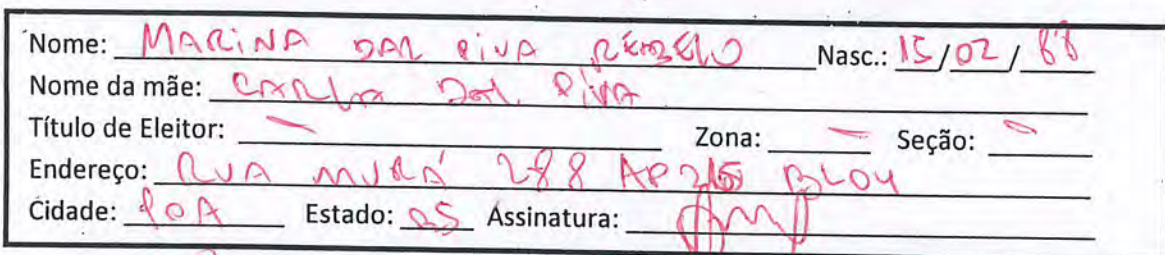 Nome: MARINA DAL PIVA REBELO Nasc.: 15/02/88
Nome da mãe: CARLA DAL PIVA
Título de Eleitor: — Zona: — Seção: —
Endereço: RUA MURÁ 288 AP 215 BL04
Cidade: POA Estado: RS Assinatura: